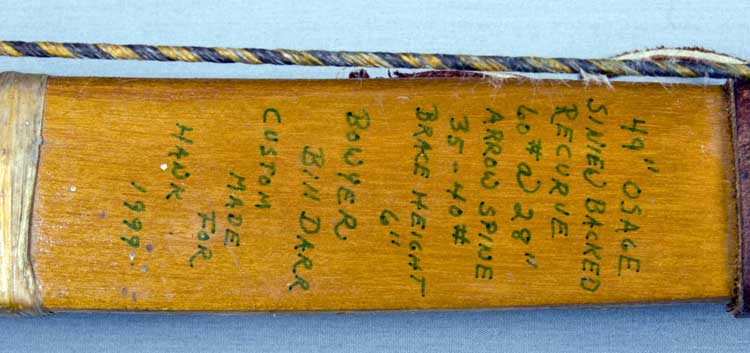 49" OSAGE
SINIEW BACKED
RECURVE
60# @ 28"
ARROW SPINE
35-40#
BRAKE HEIGHT
6"
BOWYER
Bill DARR
CUSTOM
MADE
FOR
HAWK
1999